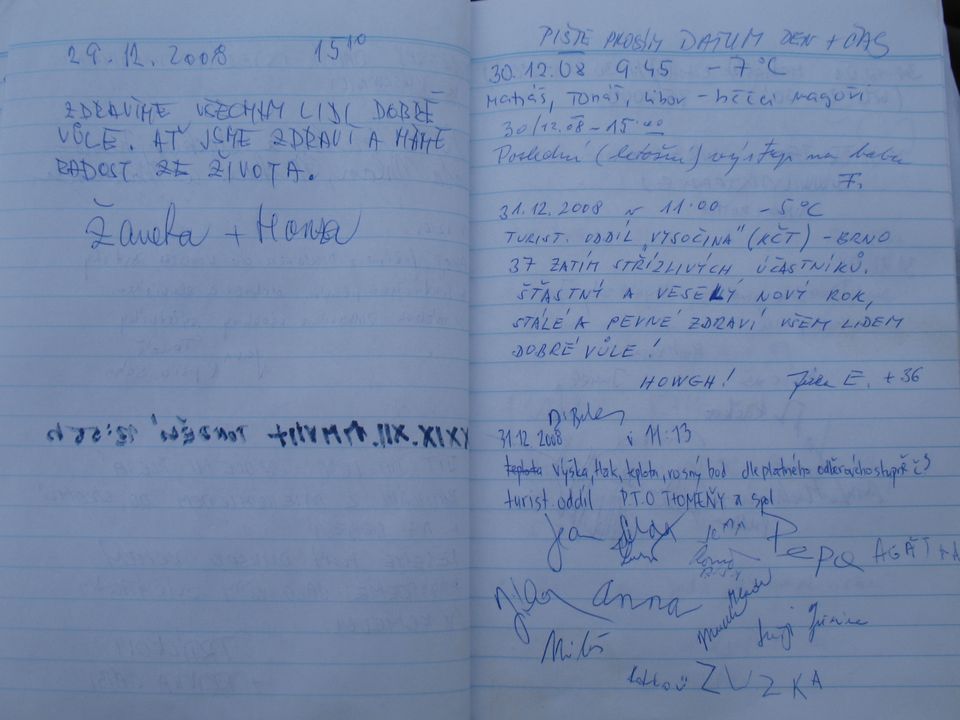 29.12.2008 15¹⁰
ZDRAVÍME VŠECHNY LIDI DOBRÉ
VŮLE. AŤ JSME ZDRAVÍ A MÁME
RADOST ZE ŽIVOTA.
Žaneta + Honza
PIŠTE PROSÍM DATUM DEN + ČAS
30.12.08 9.45 -7°C
Matyáš, Tomáš, Libor - běžci magoři
30/12.08-15.00
Poslední (letošní) výstup na babu
F.
31.12.2008 11.00 -5°C
TURIST. ODDÍL "VYSOČINA" (KČT) - BRNO
37 ZATÍM STŘÍZLIVÝCH ÚČASTNÍKŮ.
ŠŤASTNÝ A VESELÝ NOVÝ ROK,
STÁLÉ A PEVNÉ ZDRAVÍ VŠEM LIDEM
DOBRÉ VŮLE!
HOWGH! E. + 36
31.12 2008 v 11:13
teplota výška, tlak, teplota, rosný bod dle platného
turist. oddíl P.T.O a spol
Jan
Pepa AGÁTKA
anna
Miloš
ZUZKA